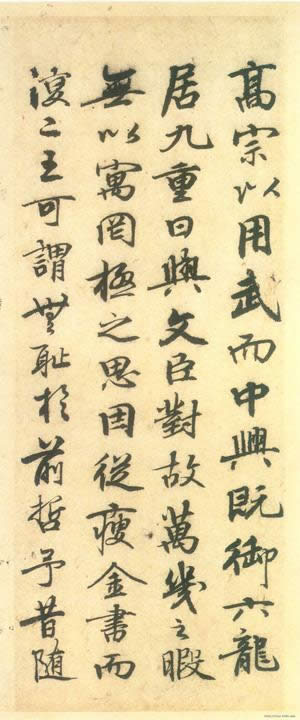 高宗以用武而中興既御六龍
居九重日與文臣對故萬幾之暇
無以寓罔極之思因從瘦金書而
復二王可謂無耻於前哲予昔随